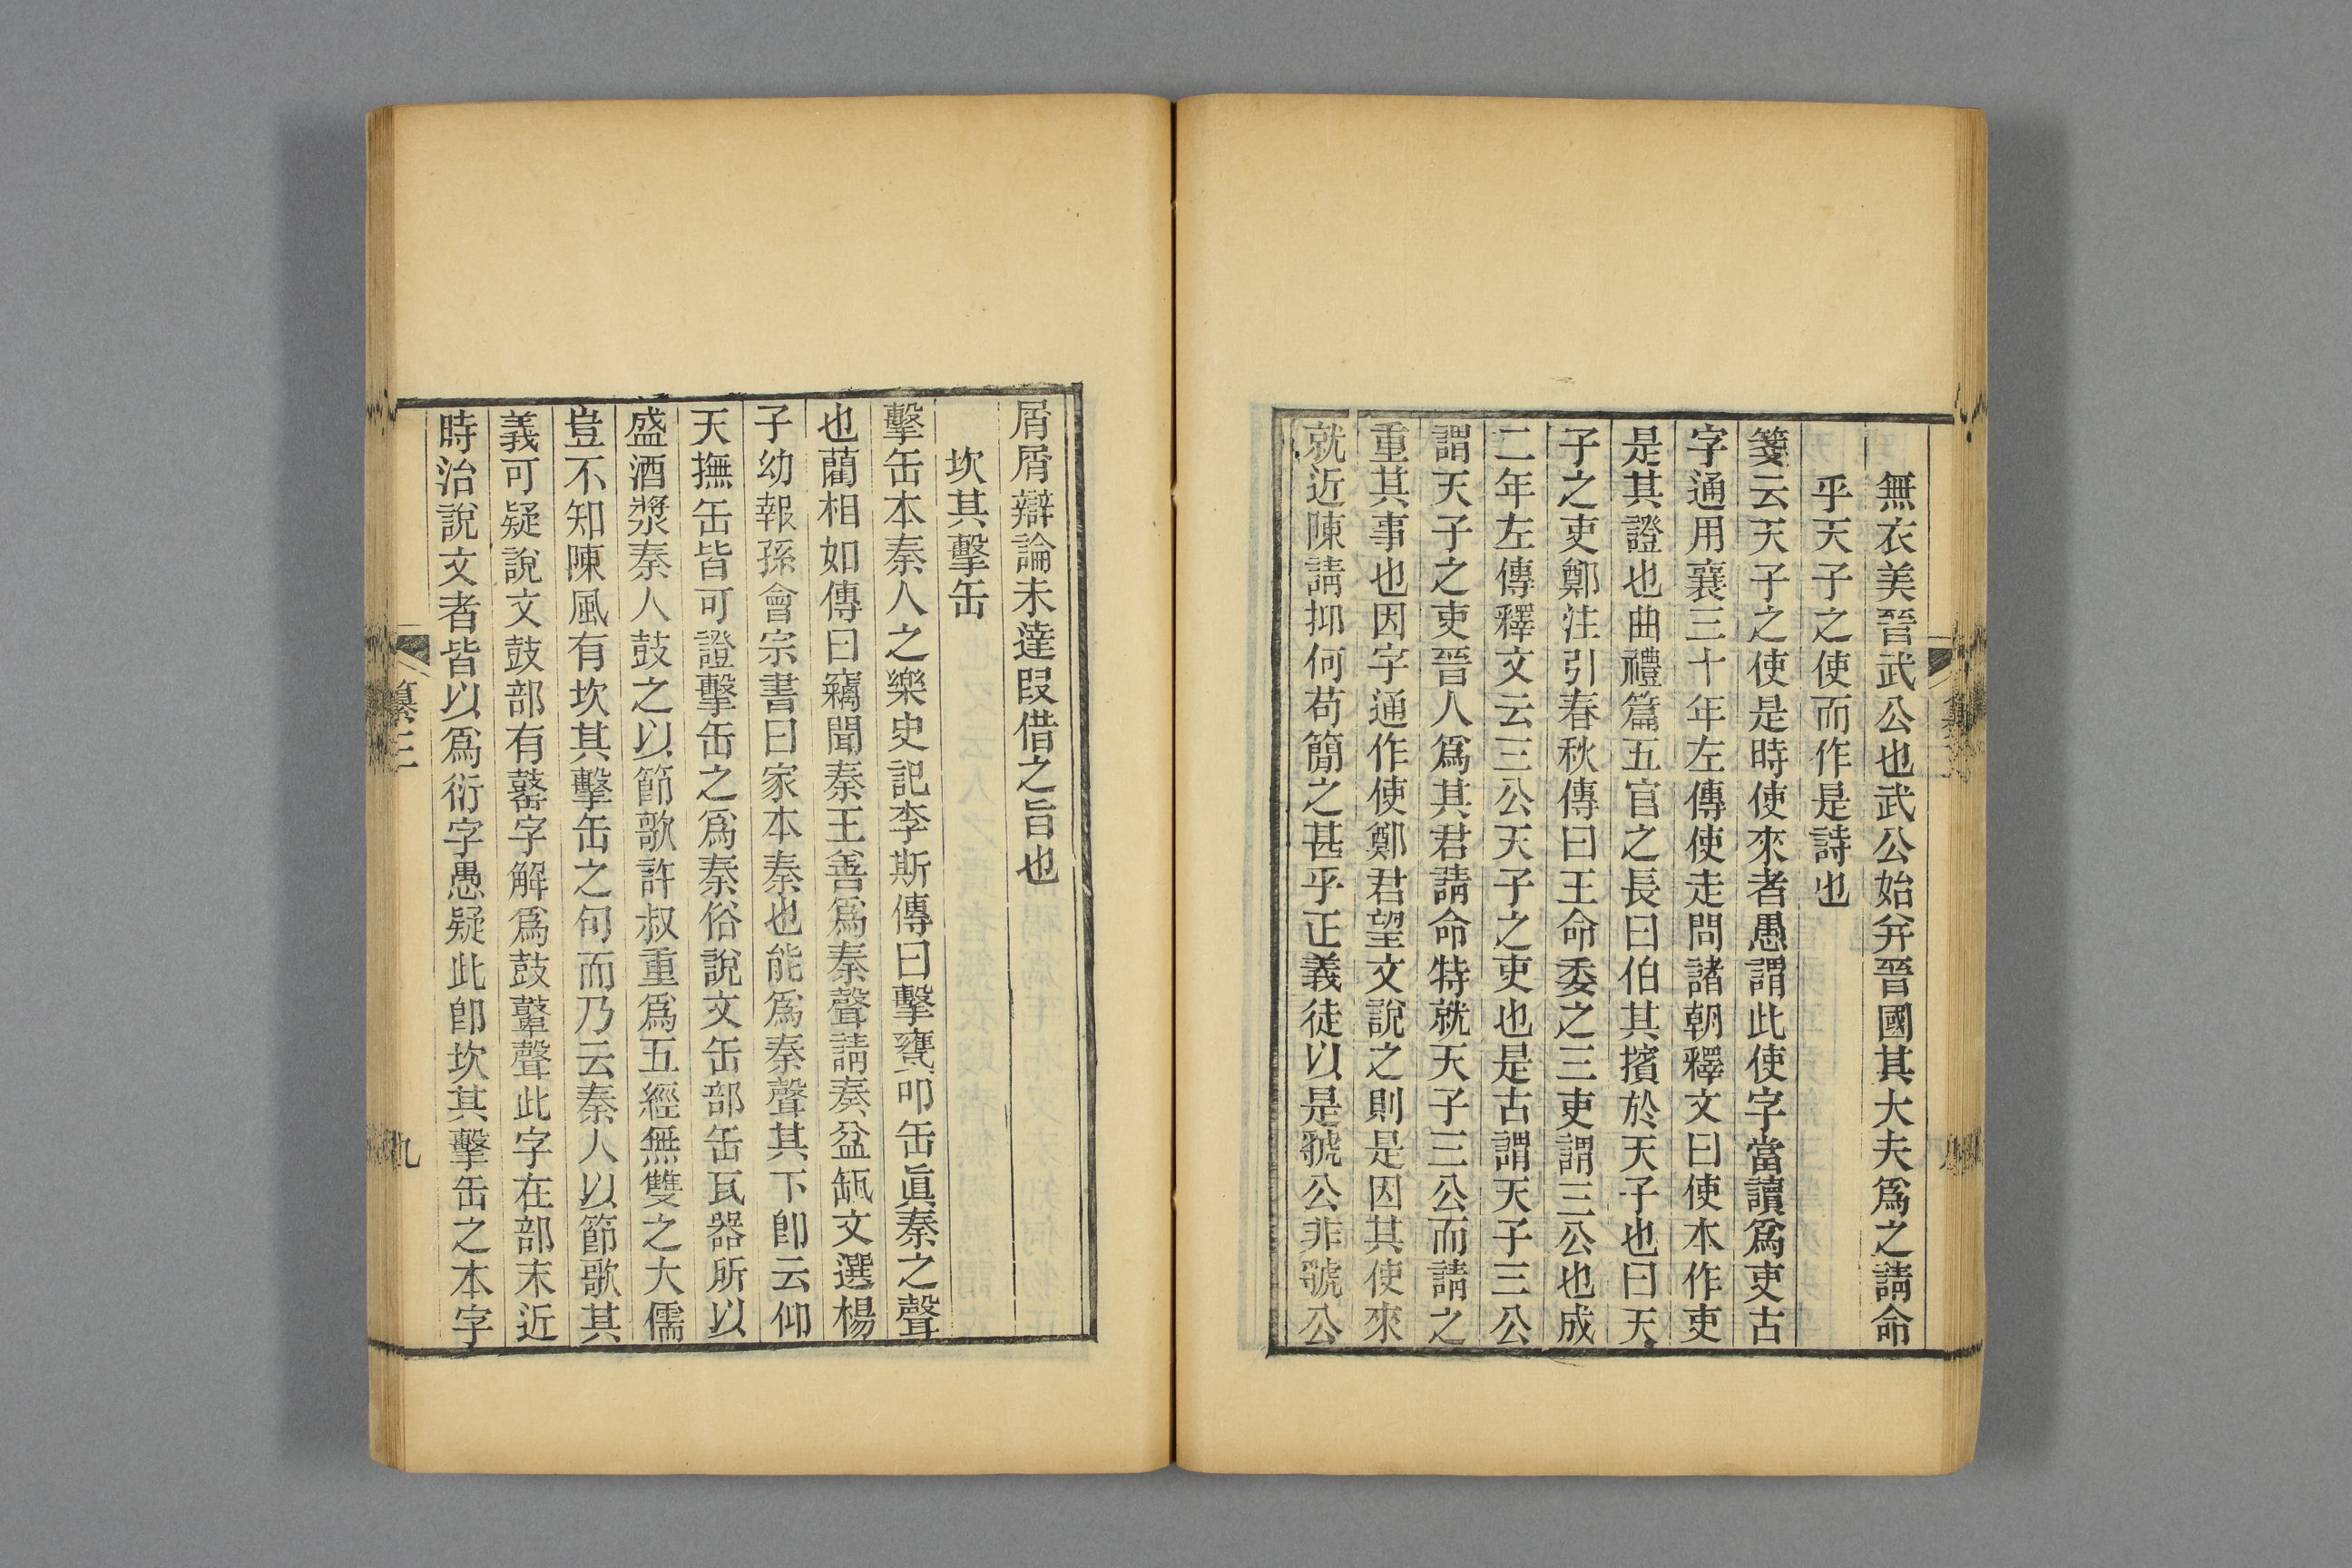 無衣美晉武公也武公始并晉國其大夫爲之請命
乎天子之使而作是詩也
箋云天子之使是時使來者愚謂此使字當讀爲吏古
字通用襄三十年左傳使走問諸朝釋文曰使本作吏
是其證也曲禮篇五官之長曰伯其擯於天子也曰天
子之吏鄭注引春秋傳曰王命委之三吏謂三公也成
二年左傳釋文云三公天子之吏也是古謂天子三公
謂天子之吏晉人爲其君請命特就天子三公而請之
重其事也因字通作使鄭君望文說之則是因其使來
就近陳請抑何苟簡之甚乎正義徒以是虢公非虢公
屑屑辯論未達叚借之旨也
坎其擊缶
擊缶本秦人之樂史記李斯傳曰擊甕叩缶眞秦之聲
也藺相如傳曰竊聞秦王善爲秦聲請奏盆缻文選楊
子幼報孫會宗書曰家本秦也能爲秦聲其下卽云仰
天撫缶皆可證擊缶之爲秦俗說文缶部缶瓦器所以
盛酒漿秦人鼓之以節歌許叔重爲五經無雙之大儒
豈不知陳風有坎其擊缶之句而乃云秦人以節歌其
義可疑說文鼓部有鼛字解爲鼓鼙聲此字在部末近
時治說文者皆以爲衍字愚疑此卽坎其擊缶之本字
纂三
九